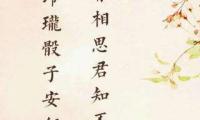 相思君知
瓏骰子安